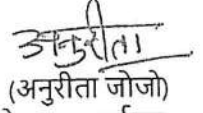 अनुरीता
(अनुरीता जोजो)